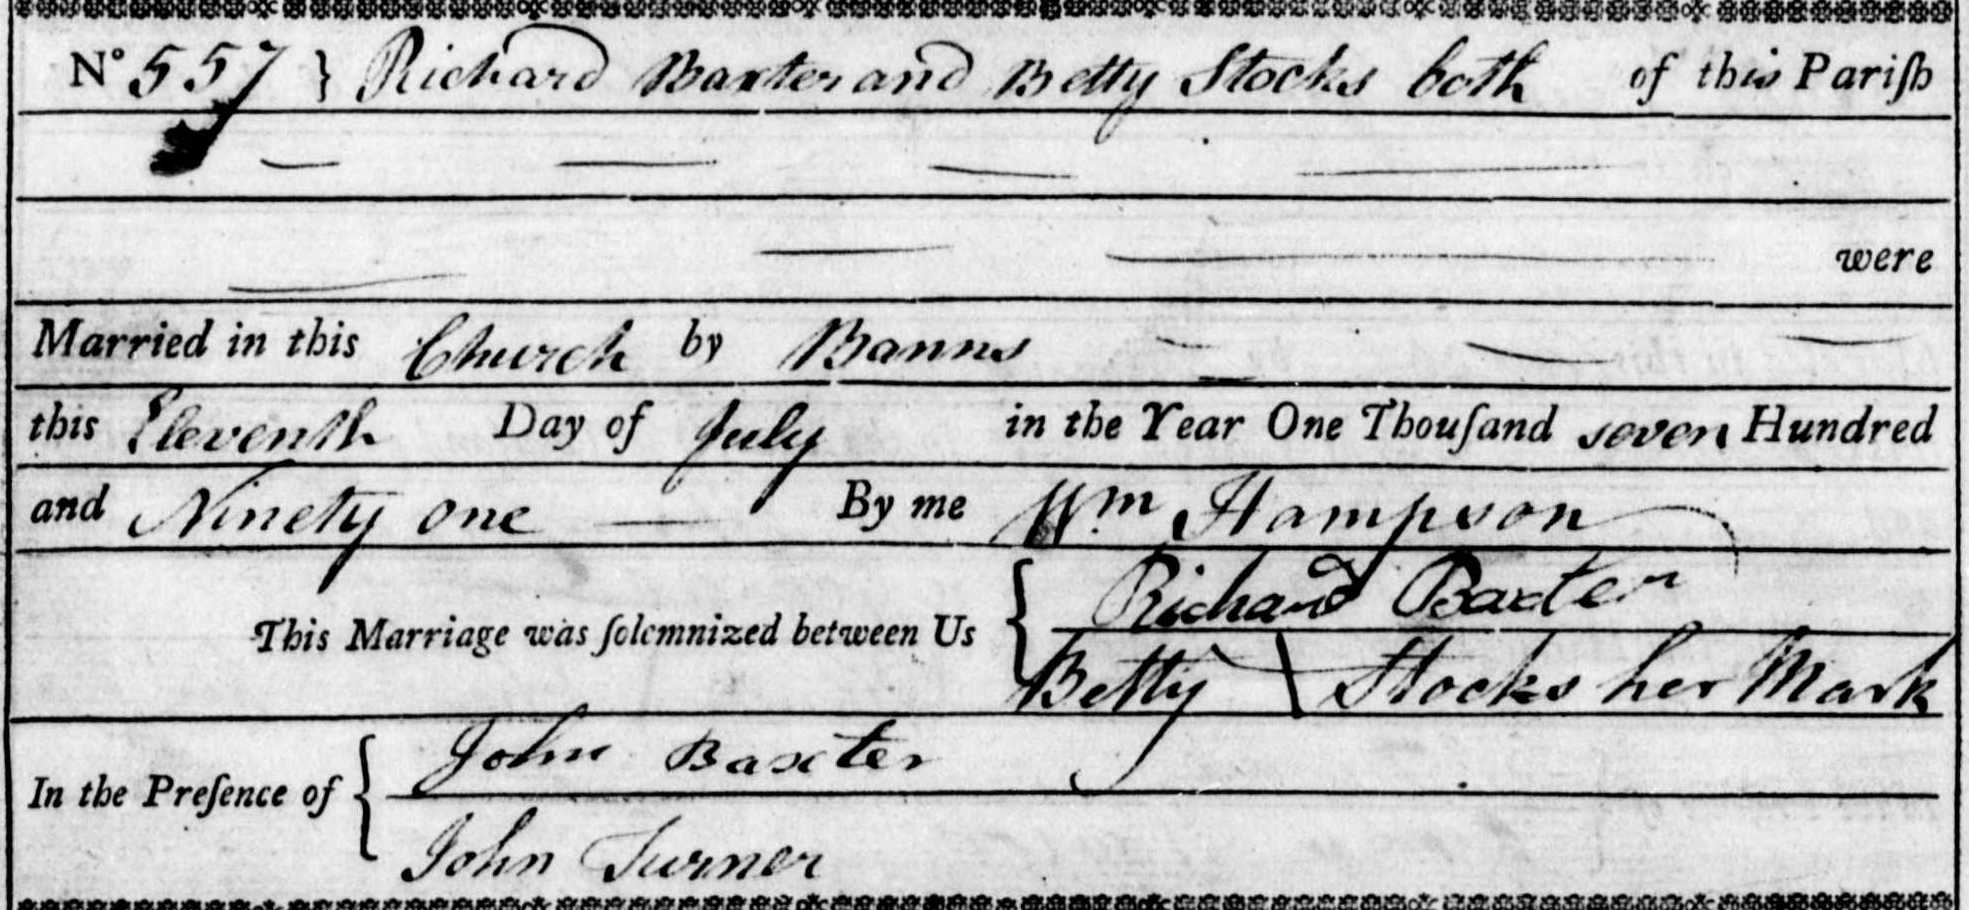 No 557 } Richard Baxter and Betty Stocks both of this Pariſh
were
Married in this Church by Banns
this Eleventh Day of July in the Year One Thouſand seven Hundred
and Ninety one By me Wm Hampson
This Marriage was ſolemnized between Us { Richard Baxter
Betty \ Stocks her Mark
In the Preſence of { John Baxter
John Turner